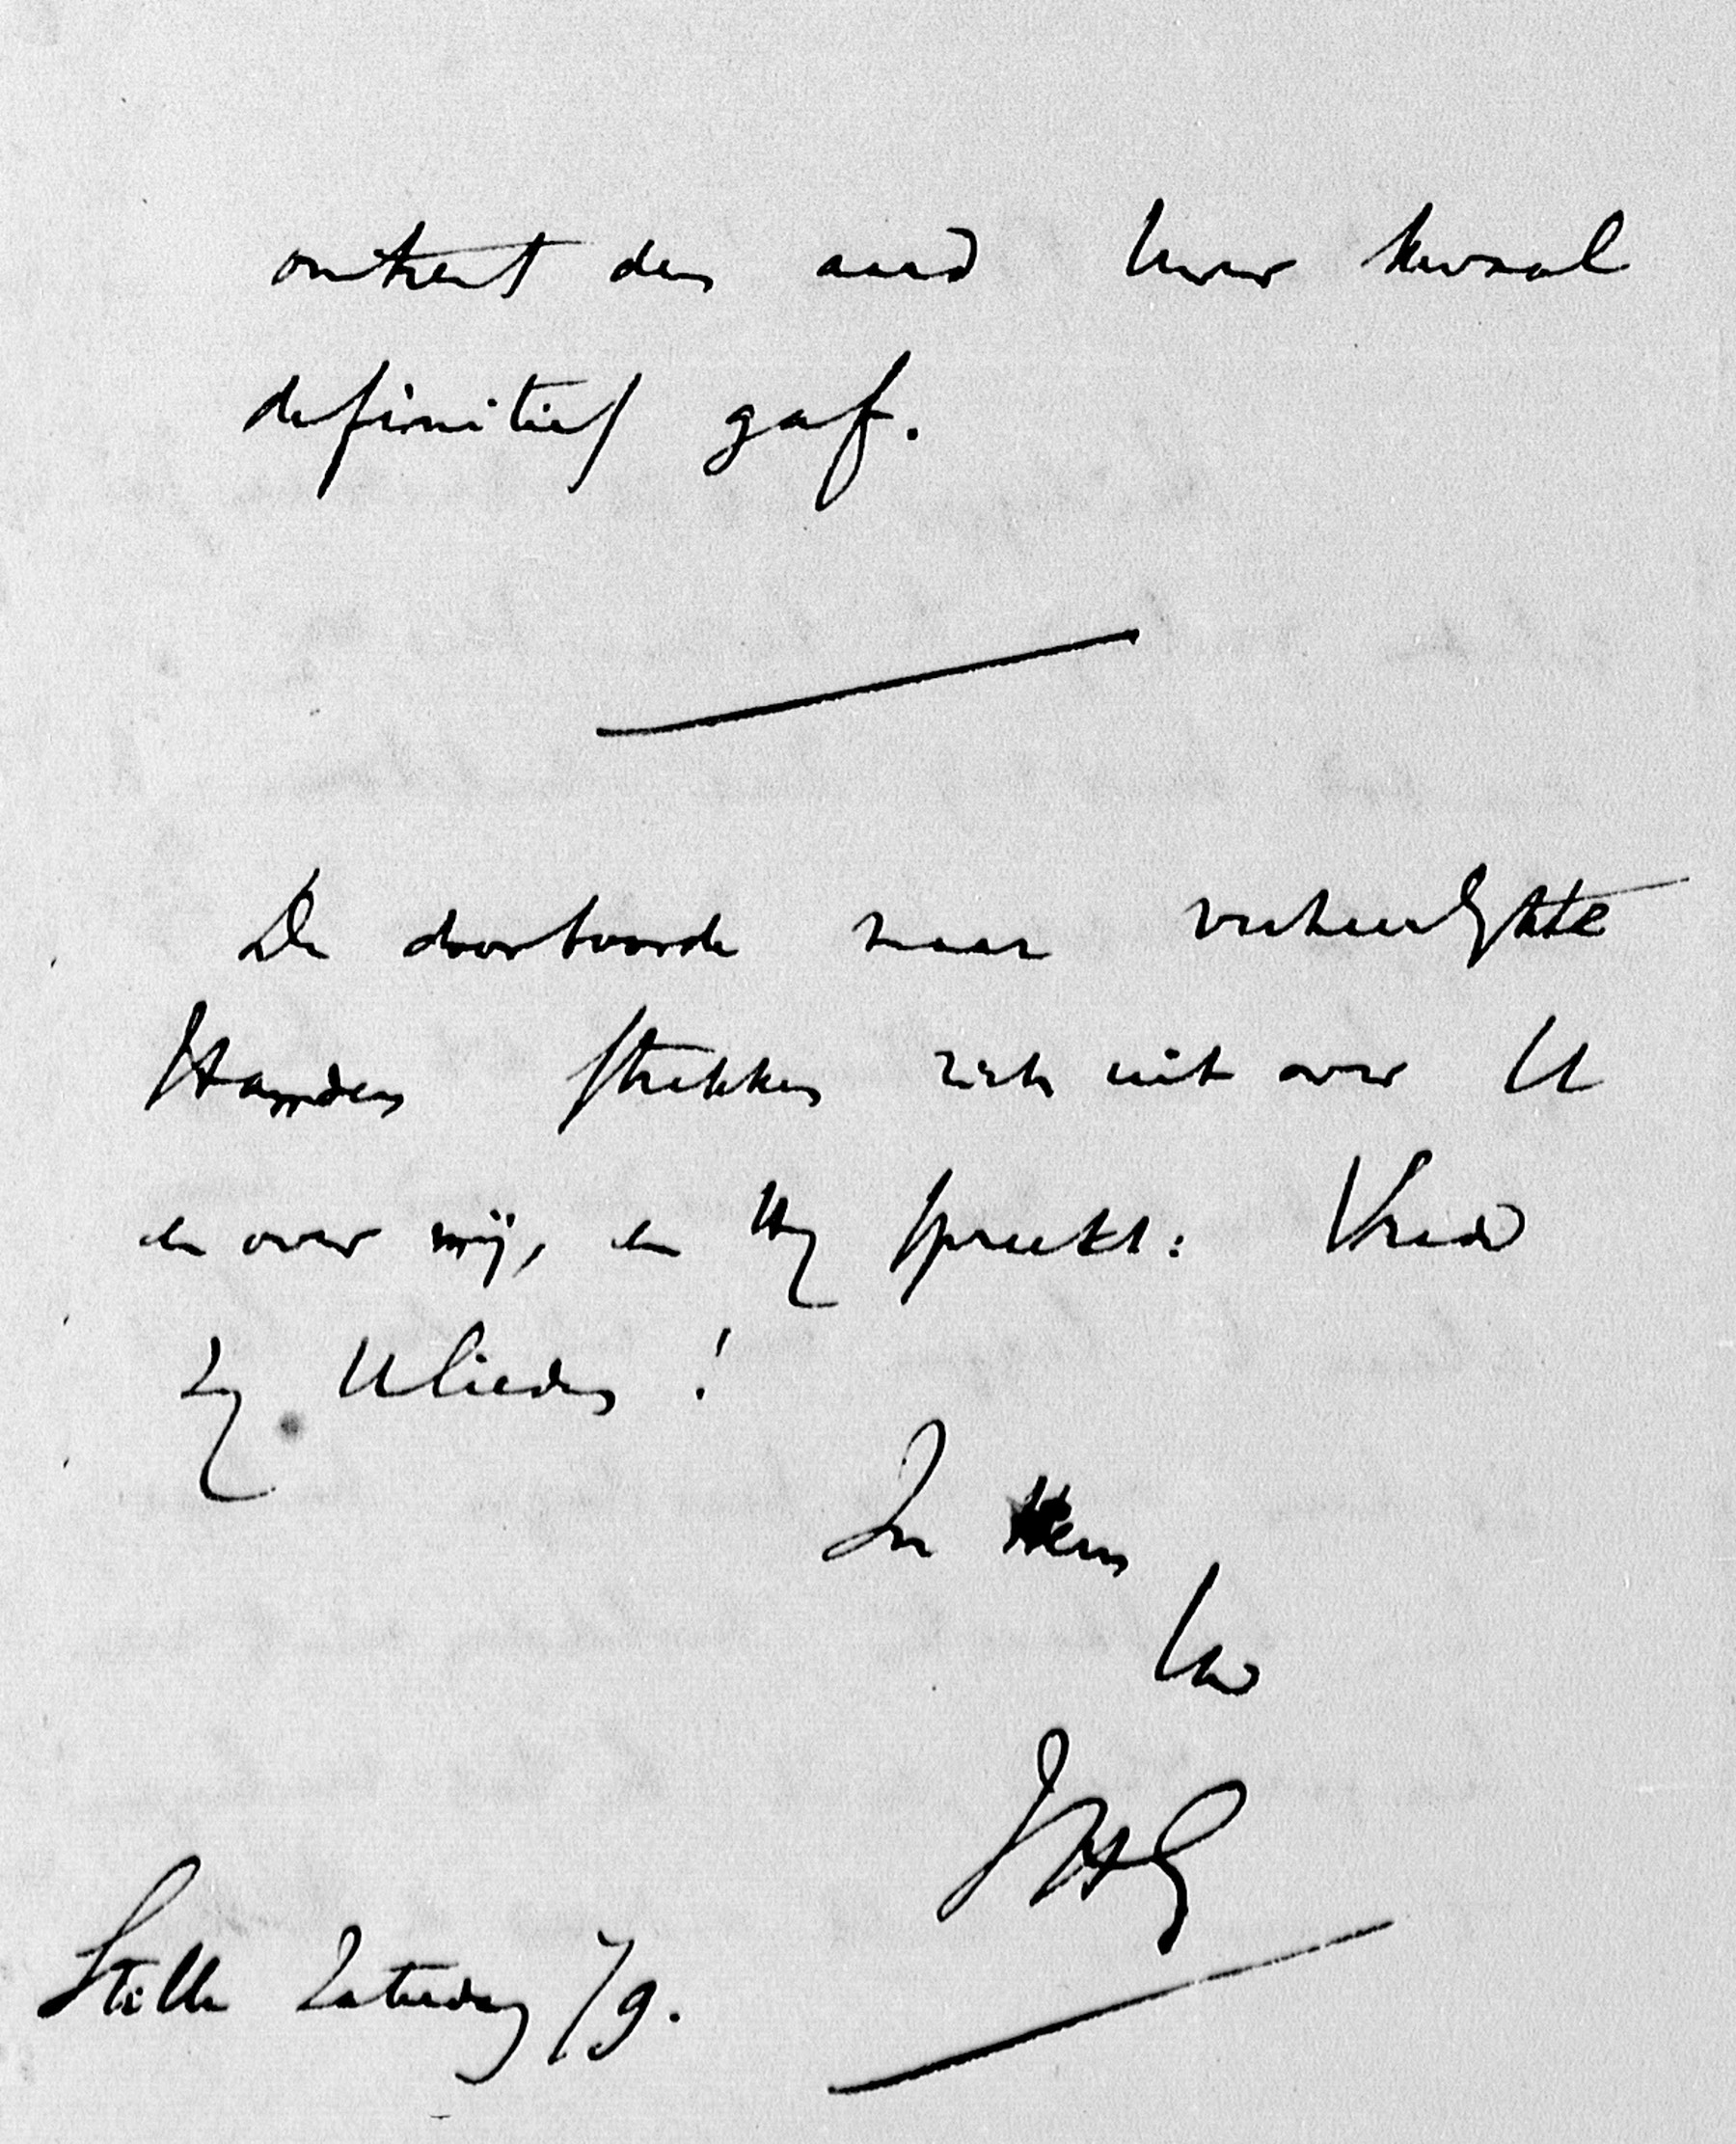 omtrent den aard Uwer kwaal
definitief gaf.
De doorboorde maar verheerlykte
Handen strekken zich uit over U
en over mij, en Hy spreekt: Vrede
zy Ulieden!
In Hem
Uw
JHG
Stille Zaturdag 79.